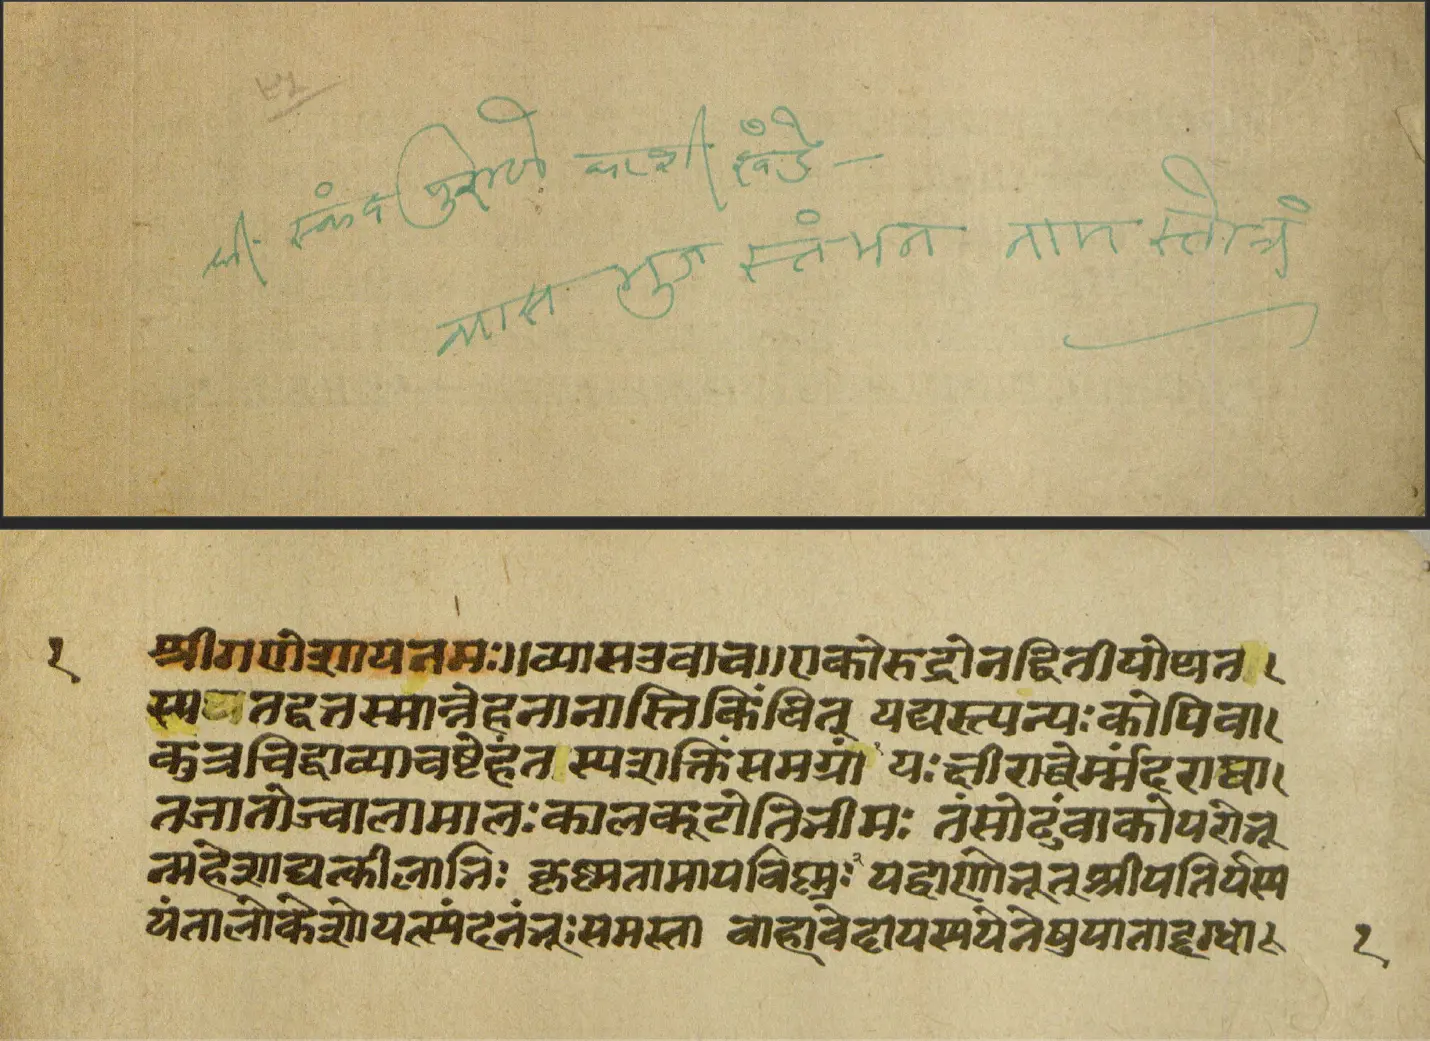 श्री स्कंद पुराणे काशी खंडे —
व्यास भुज स्तंभन नाम स्तोत्रं
१ श्रीगणेशायनमः।।व्यासउवाच।।एकोरुद्रोनद्वितीयोयत।
स्य तद्ब्रह्मै तस्मान्नेहनानास्तिकिंचित् यद्यस्त्यन्यःकोपिवा।
कुत्रचिद्वाव्याचष्टेहंत स्यशक्तिंसमग्रां यःक्षीराब्धेर्म्मंदराघा।
तजातोज्वालामालःकालकूटोतिभीमः तंसोढुंवाकोपरोभू
न्महेशाद्यत्कीलाभिः कृष्मतामापविष्णुः यद्बाणोभूत्श्रीपतिर्यस्य
यंतालोकेशोयत्स्यंदनंभूःसमस्ता वाहावेदायस्ययेनेषुपातादग्धा। १